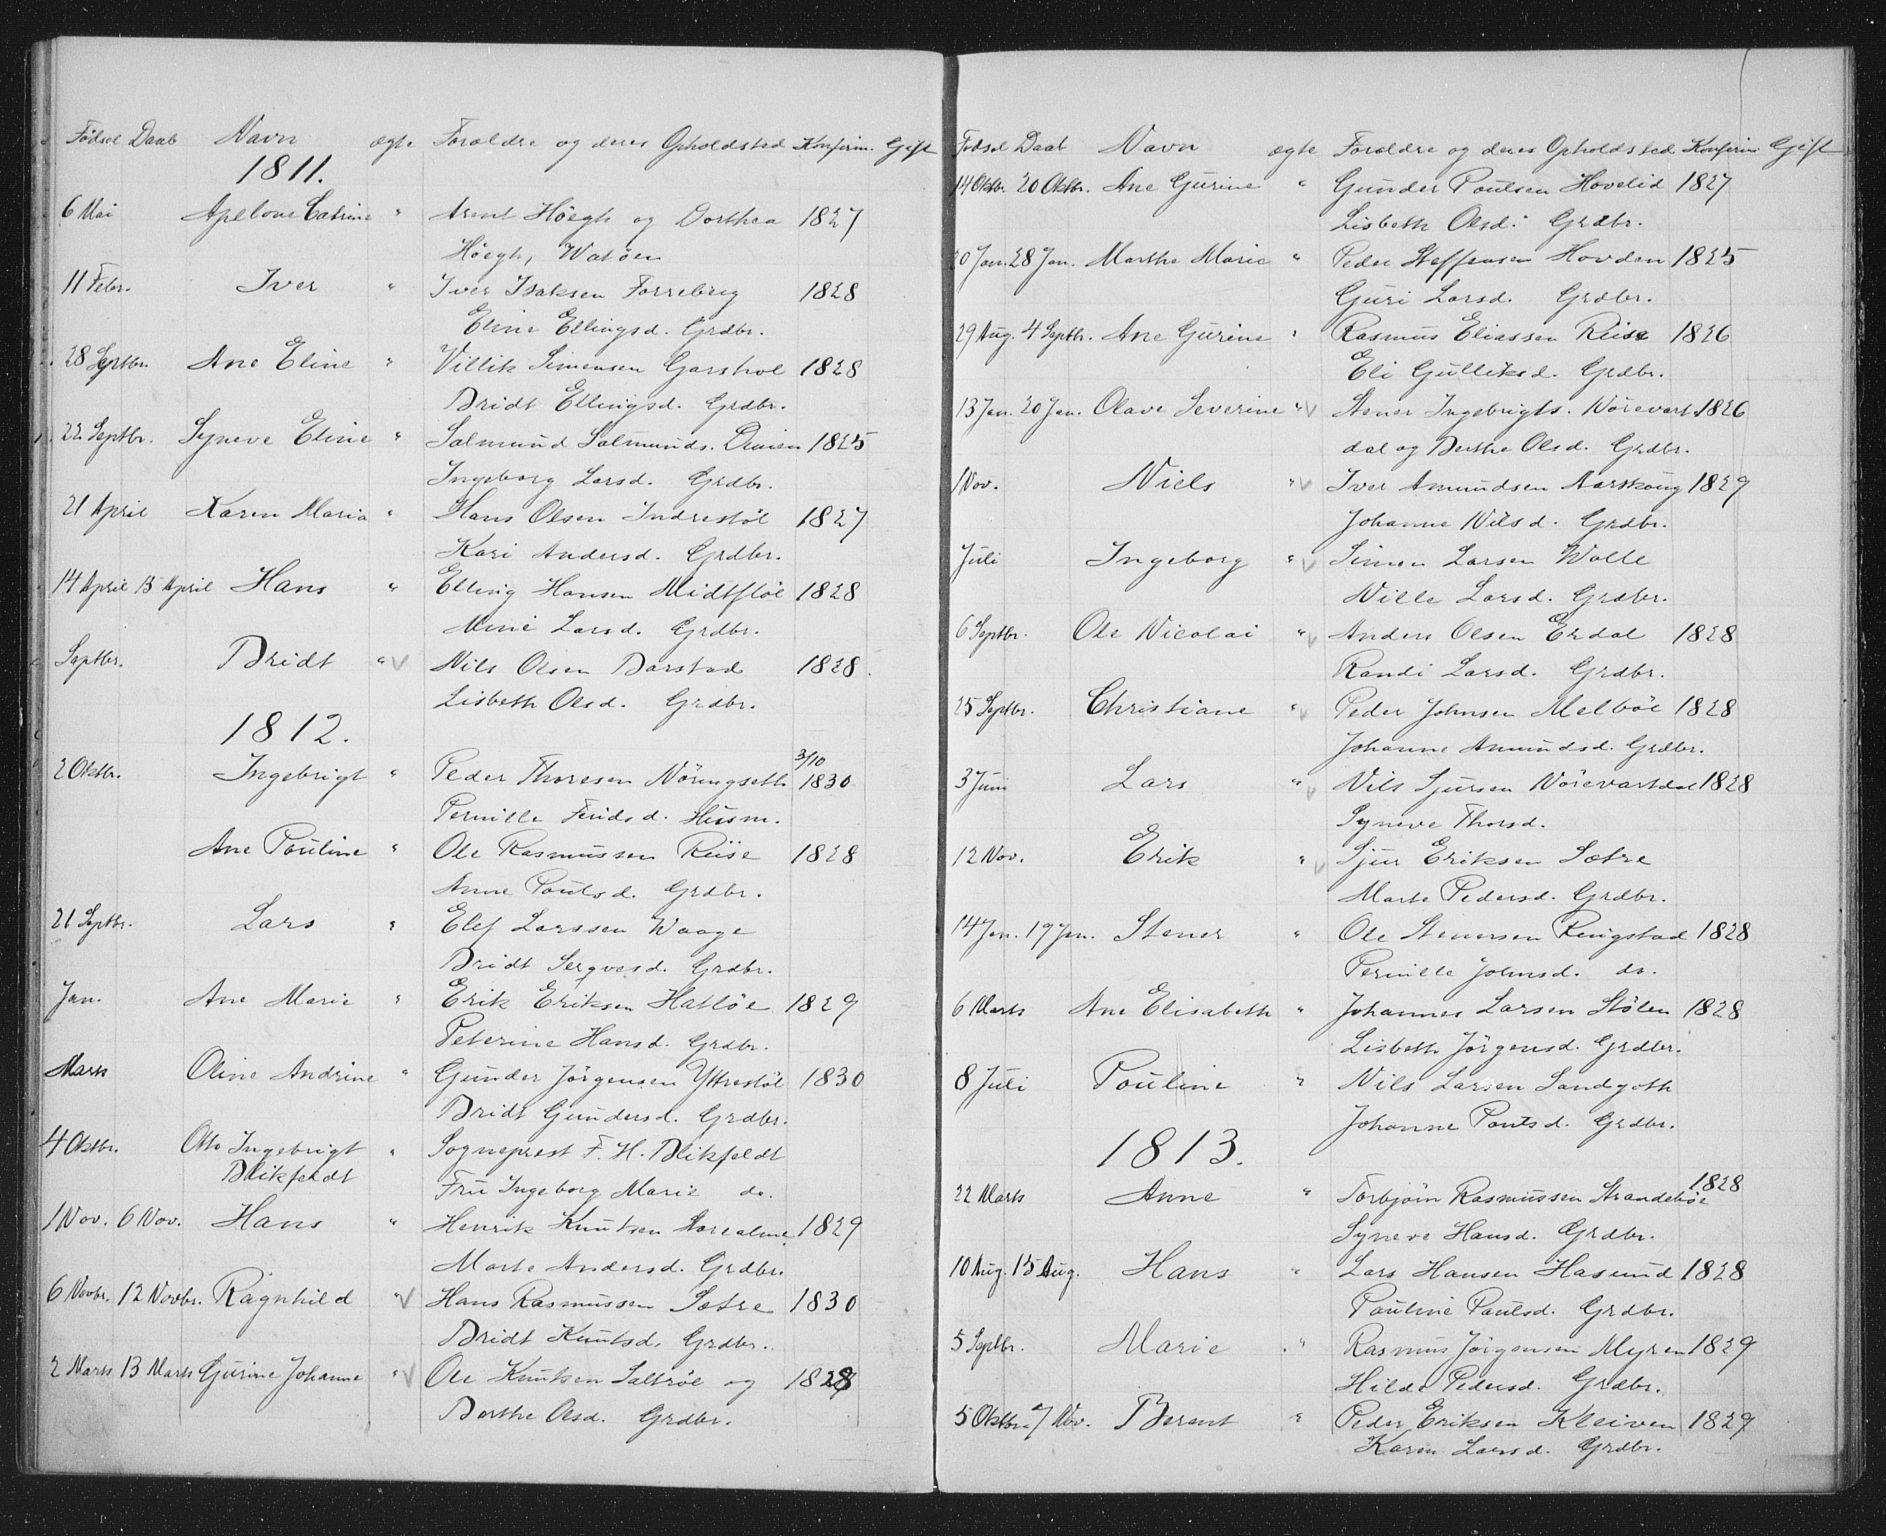 Fødsel Daab Navn ægte Forældre og deres Opholdsted Konfirm. Gift
1811.
6 Mai Apelone Catrine " Arent Höegh og Dorthea 1827
Höegh, Watöen
11 Febr. Iver " Iver Isaksen Torrebreg 1828
Eline Ellingsd. Grdbr.
28 Septbr. Ane Eline " Villik Simensen Garshol 1828
Bridt Ellingsd. Grdbr.
22 Septbr. Syneve Eline " Salmund Salmunds. 1825
Ingeborg Larsd. Grdbr.
21 April Karen Maria " Hans Olsen Indrestöl 1827
Kari Andersd. Grdbr.
14 April 15 April Hans " Elling Hansen Midtflöi 1828
Larsd. Grdbr.
Septbr. Bridt " V Nils Olsen Barstad 1828.
Lisbeth Olsd. Grdbr.
1812.
3/10
2 Oktbr. Ingebrigt " Peder Thoresen Nöringseth 1830
Pernille Husm.
Ane Pouline " Ole Rasmussen Riise 1828
Anne Poulsd. Grdbr.
21 Septbr. Lars " Elef Larssen Waage
Bridt Grdbr.
Jan. Ane Marie " Erik Eriksen Hatlöe 1829
Peterine Hansd. Grdbr.
Marts Oline Andrine " Gunder Jörgensen Yttrestöl 1830
Bridt Gundersd. Grdbr.
4 Oktbr. Otto Ingebrigt " Sogneprest F. H. Blikfeldt
Blikfeldt
Fru Ingeborg Marie do.
1 Nov. 6 Nov. Hans " Henrik Knutsen 1829
Marte Andersd. Grdbr.
6 Novbr. 12 Novbr. Ragnhild " V Hans Rasmussen Sætre 1830
Bridt Knutsd. Grdbr.
2 Marts 13 Marts Gurine Johanne " V Ole Knutsen Saltröe og 1828
Berthe Olsd. Grdbr.
Fødsel Daab Navn ægte Forældre og deres Opholdsted Konfirm Gift
14 Oktbr. 20 Oktbr. Ane Gurine " Gunder Poulsen Hovelid 1827
Lisbeth Olsd. Grdbr.
20 Jan. 28 Jan. Marthe Marie " Peder Steffensen Hovden 1825
Guri Larsd. Grdbr.
29 Aug. 4 Septbr. Ane Gurine " Rasmus Eliassen Riise 1826
Eli Gulliksd. Grdbr.
13 Jan. 20 Jan. Olave Severine " V Stener Ingebrigts. Nörevart- 1826
dal og Berthe Olsd. Grdbr.
1 Nov. Niels " V Iver Amundsen Aarskoug 1829
Johanne Nilsd. Grdbr.
Juli Ingeborg " V Simon Larsen Wolle
Nille Larsd. Grdbr.
6 Septbr. Ole Nicolai " V Anders Olsen Erdal 1828
Randi Larsd. Grdbr.
25 Septbr. Christiane " V Peder Johnsen Melböe 1828
Johanne Amundsd. Grdbr.
3 Juni Lars " V Nils Sjursen Nörevartdal 1828
Syneve Thorsd.
12 Nov. Erik " V Sjur Eriksen Sætre
Marte Pedersd. Grdbr.
14 Jan. 19 Jan. Stener " Ole Stenersen Ringstad 1828
Pernille Johnsd. do.
6 Marts Ane Elisabeth " Johannes Larsen Stölen 1828
Lisbeth Jörgensd. Grdbr.
8 Juli Pouline " Nils Larsen Landgoth
Johanne Poulsd. Grdbr.
1813.
22 Marts Anne " Torbjörn Rasmussen Strandeböe 1828
Syneve Hansd. Grdbr.
10 Aug. 15 Aug. Hans " Lars Hansen Hasund 1828
Pauline Paulsd. Grdbr.
5 Septbr. Marie " Rasmus Jörgensen Myren 1829
Hilde Pedersd. Grdbr.
5 Oktbr. 7 Nov. Berent " Peder Eriksen Kleiven 1829
Karen Larsd. Grdbr.